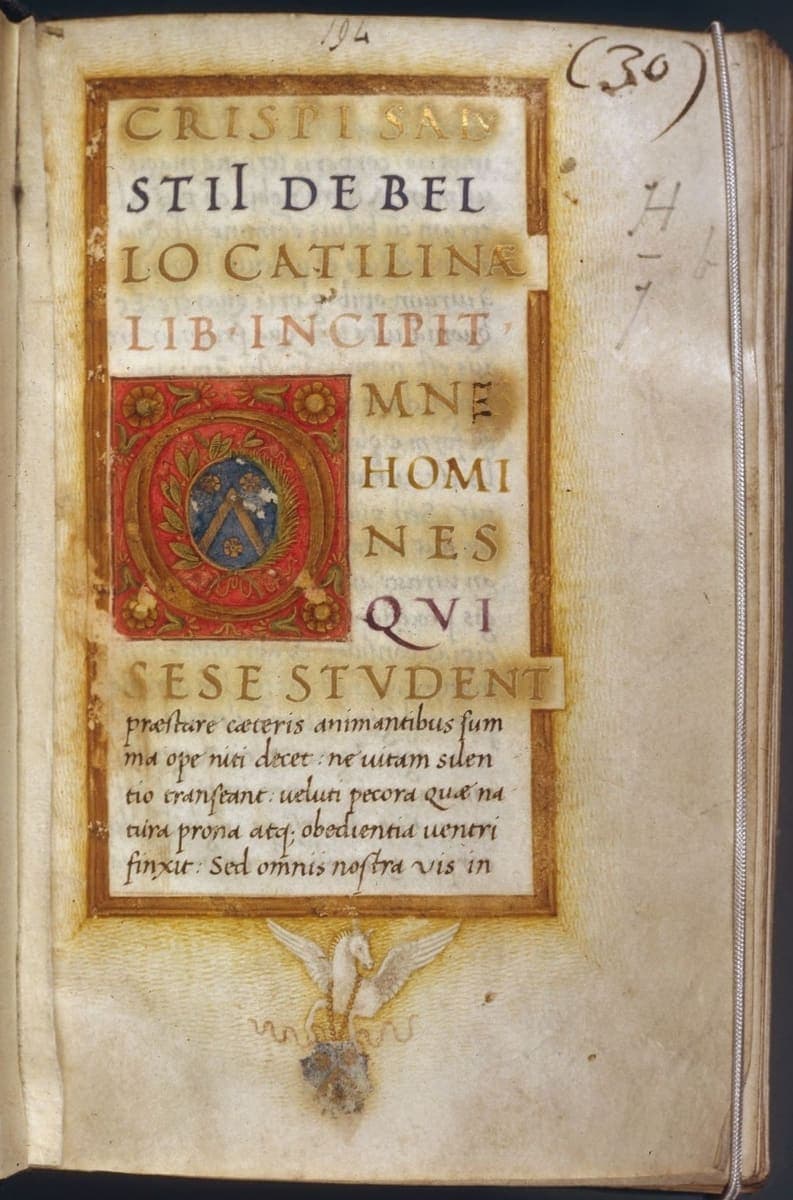 194
(30)
H
7
b
CRISPI SALV
STII DE BEL
LO CATILINÆ
LIB·INCIPIT·
OMNES
HOMI
NES
QVI
SESE STVDENT
præstare cæteris animantibus sum
ma ope niti decet: ne uitam silen
tio transeant: ueluti pecora quæ na
tura prona atq; obedientia uentri
finxit: Sed omnis nostra vis in